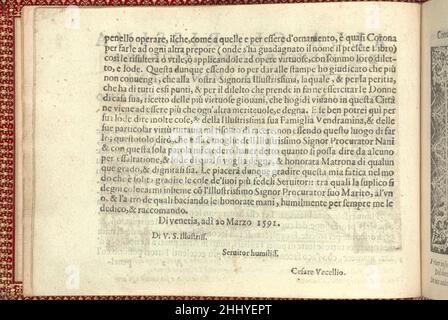 penello operare, ilche, come a quelle e per essere d'ornamento, è quasi Corona
per farle ad ogni altra prepore (onde s'ha guadagnato il nome il presēte libro)
così le risulterà d'vtile, ò applicandole ad opere virtuose, con sommo loro dilet-
to, e lode. Questa dunque essendo io per dar alle stampe ho giudicato che più
non conuenga, che alla Vostra Signoria Illustrissima, laquale, & per la peritia,
che ha di tutti essi punti, & per il diletto che prende in farne essercitar le Donne
di casa sua, ricetto delle più virtuose giouani, che hoggidì viuano in questa Città
ne viene ad essere più che ogn'altra meriteuole, e degna. E se ben potrei quì per
sua lode dire molte cose, & della Illustrissima sua Famiglia Vendramina, & delle
sue particolar virtù tuttauia mi risoluo di tacere, non essendo questo luogo di far
lo; questo solo dirò, che essa è moglie dell'Illustrissimo Signor Procurator Nani
& con questa sola parola mi crederò hauer detto quanto si possa dire da alcuno
per essaltatione, & lode di qual si voglia degna, & honorata Matrona di qualun
que grado, & dignità si sia. Le piacerà dunque gradire questa mia fatica nel mo
do che è solita gradire le cose de' suoi più fedeli Seruitori: tra quali la supplico si
degni collocarmi insieme cō l'Illustrissimo Signor Procurator suo Marito, al'vn
o, & l'altro de quali baciando le honorate mani, humilmente per sempre me le
dedico, & raccomando.
Di venetia, adì 20 Marzo 1591.
Di V. S. Illustriss.
Seruitor humiliss.
Cesare Vecellio.
alamy
Image ID: 2HHYEPT
www.alamy.com